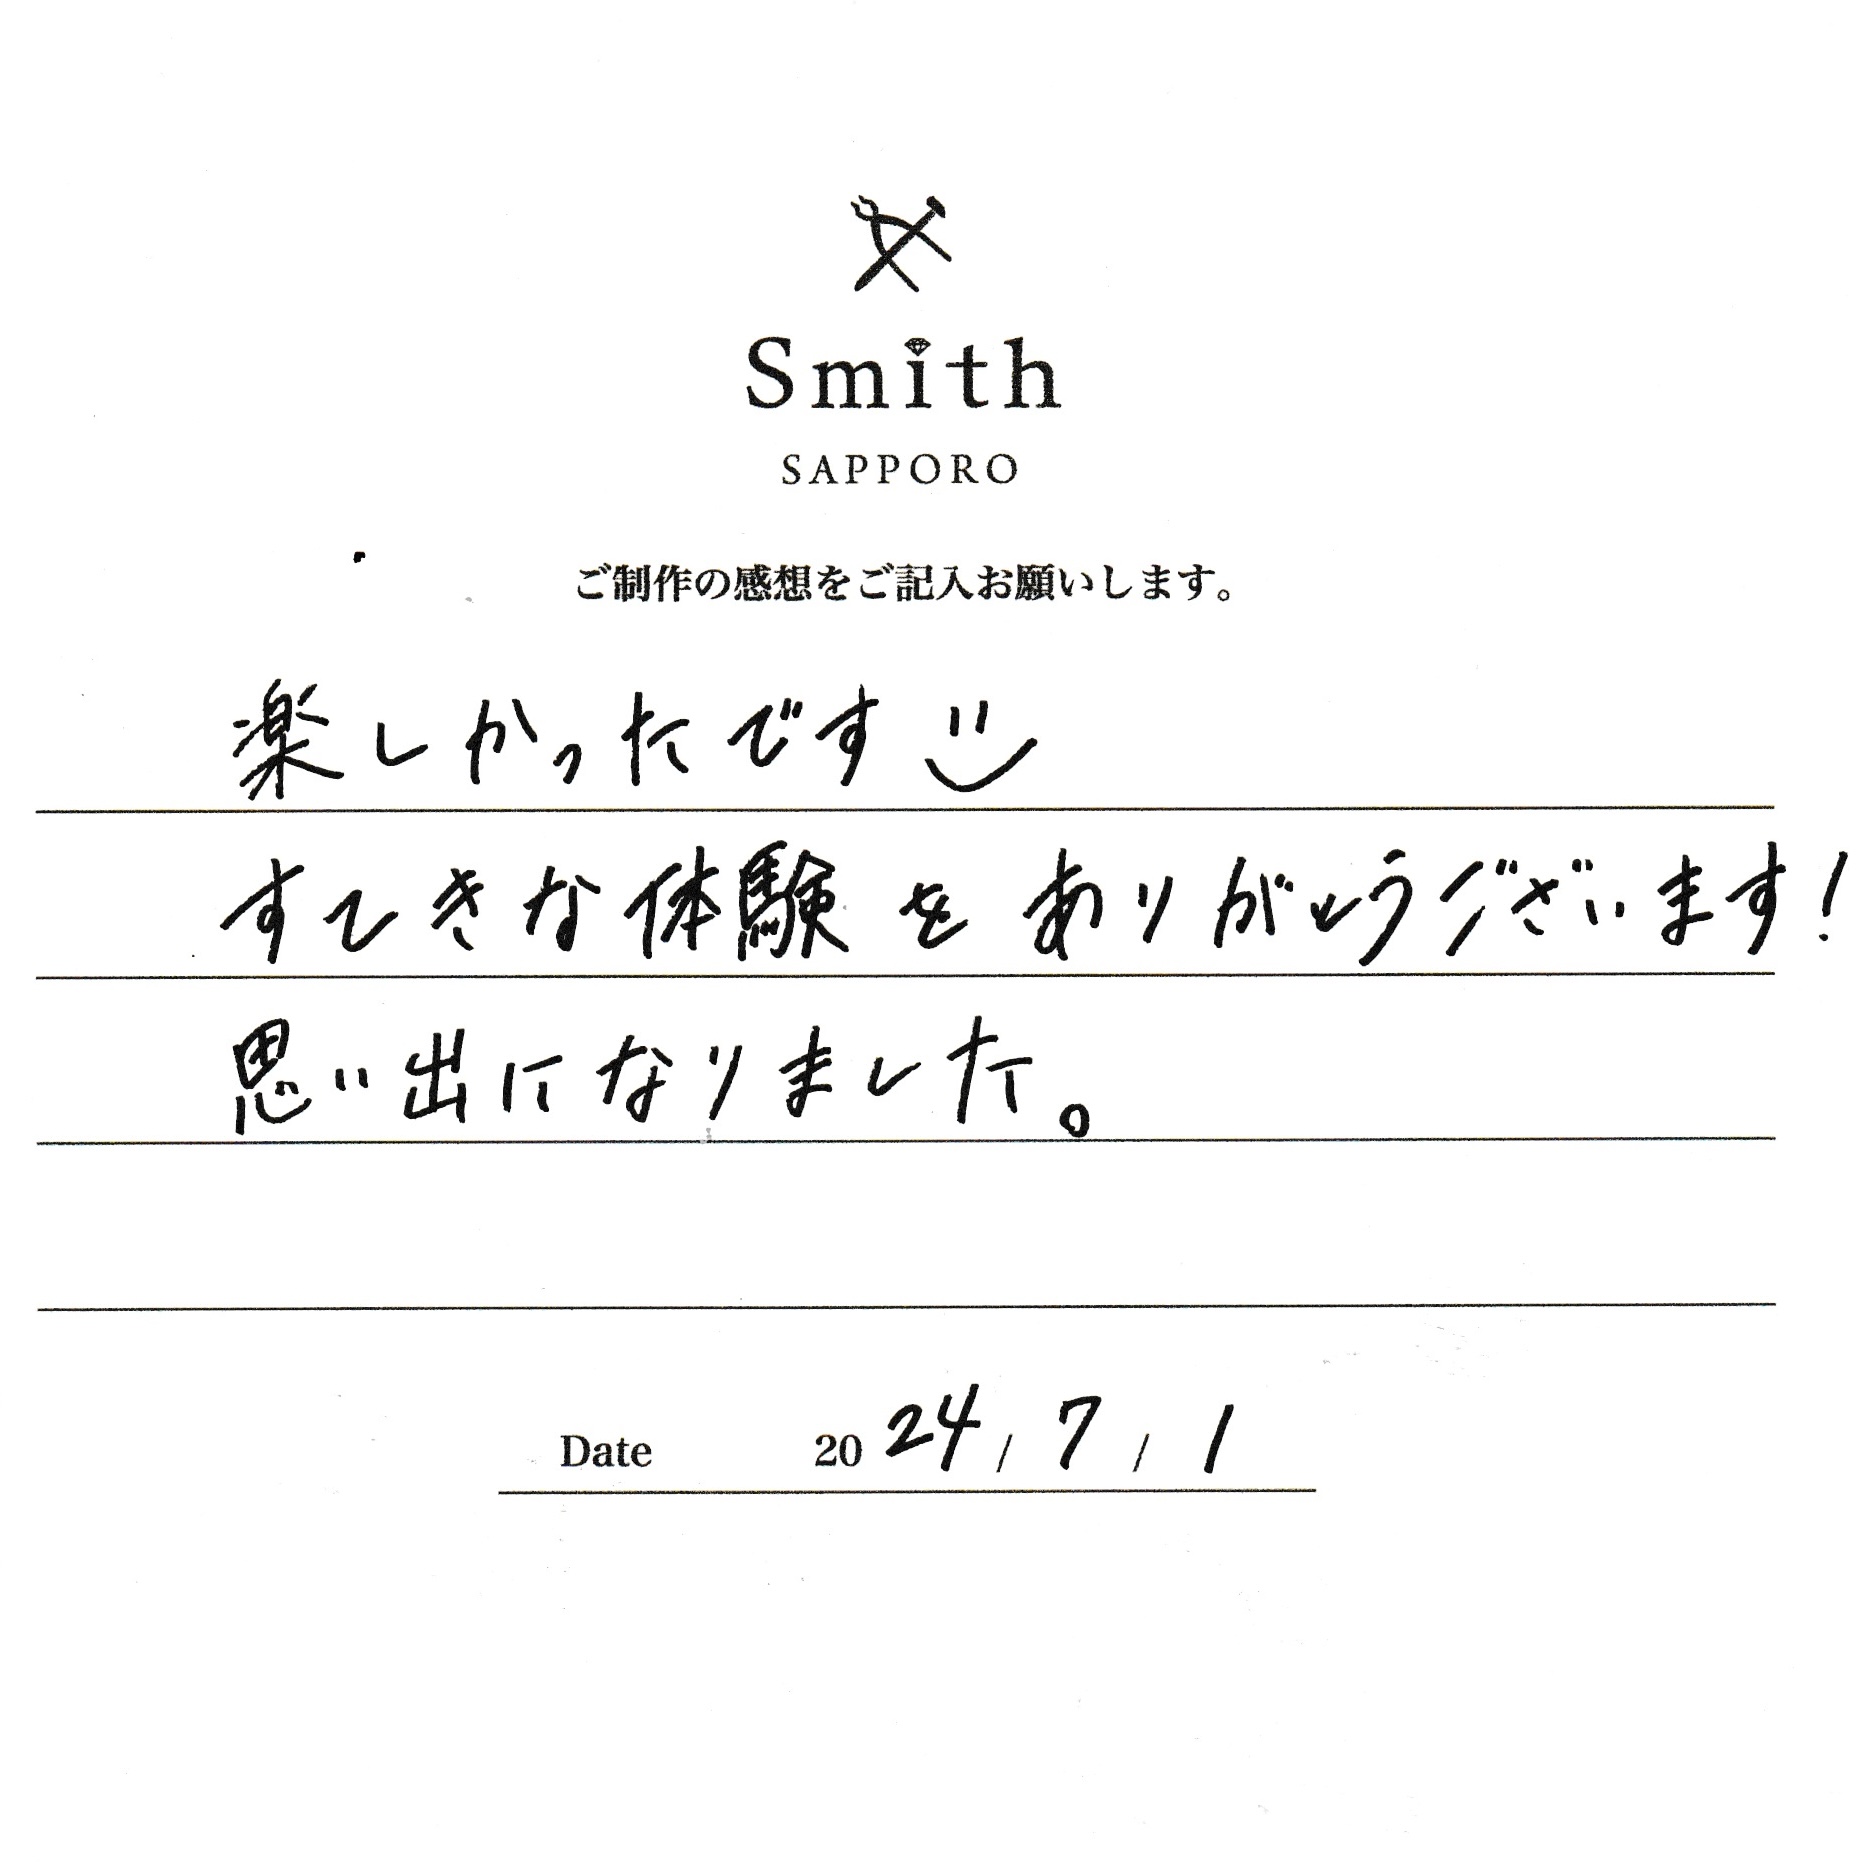 Smith
SAPPORO
ご制作の感想をご記入お願いします。
楽しかったです
すてきな体験をありがとうございます!
思い出になりました。
Date 2024/7/1